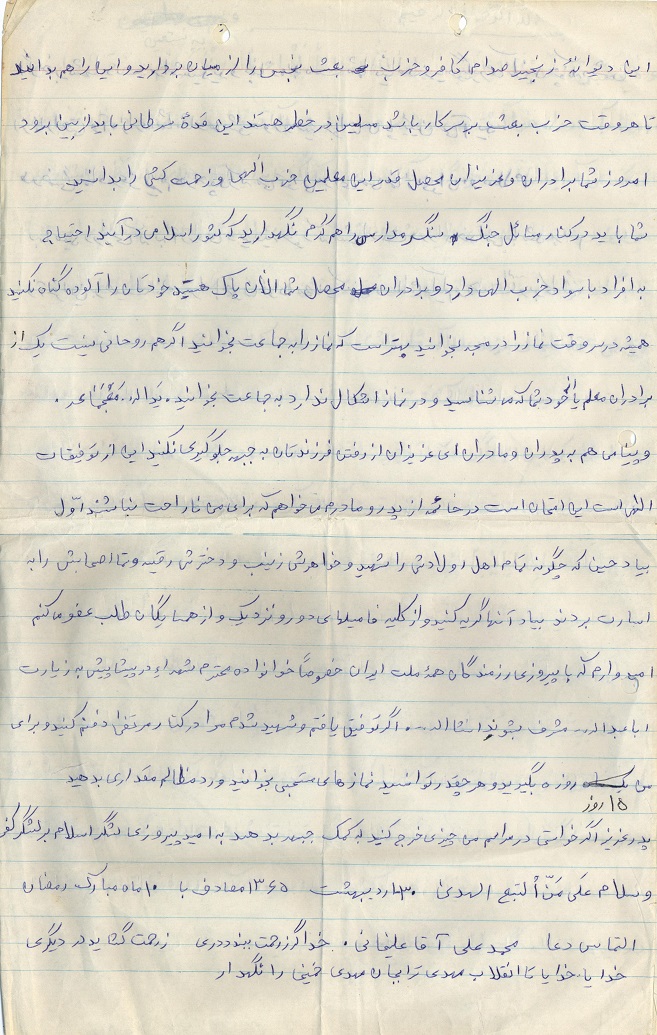 این دیوانهٔ زنجیر صدام کافر و حزب بعث نجس را از میان بردارید و این را هم بدانید
تا هر وقت حزب بعث بر سر کار باشد مسلمین در خطر هستند این غدهٔ سرطانی باید از بین برود
امروز شما برادران و عزیزان محصل قدر این معلمین حزب الهی و زحمت کش را بدانید
شما باید در کنار مسائل جنگ سنگر مدارس را هم گرم نگهدارید که کشور اسلامی در آینده احتیاج
به افراد باسواد حزب الهی دارد و برادران محصل شما الان پاک هستید خودتان را آلوده گناه نکنید
همیشه در سر وقت نماز را در مسجد بخوانید بهتر است که نماز را به جماعت بخوانید اگر هم روحانی نیست یک از
برادران معلم یا از خود شما که می شناسید و در نماز اشکال ندارد به جماعت بخوانید. یداله
و پیامی هم به پدران و مادران ای عزیزان از رفتن فرزندتان به جبهه جلوگیری نکنید این از توفیقات
الهی است این امتحان است در خاتمه از پدر و مادرم می خواهم که برای من ناراحت نباشند اول
بیاد حسین که چگونه تمام اهل و لادش را شهید و خواهرش زینب و دخترش رقیه و تمام اصحابش را به
اسارت بردند بیاد آنها گریه کنید و از کلیه فامیلهای دور و نزدیک و از همسایگان طلب عفو می کنم
امیدوارم که با پیروزی رزمندگان همهٔ ملت ایران خصوصاً خانواده محترم شهداء در پیشاپیش به زیارت
اباعبداله مشرف بشوند انشااله اگر توفیق یافتم و شهید شدم مرا در کنار مرتضی دفنم کنید و برای
من روزه بگیرید و هر چقدر توانستید نمازهای مستحبی بخوانید و رد مظالم مقداری بدهید
۱۵ روز
پدر عزیز اگر خواستی در مراسم من چیزی خرج کنید به کمک جبهه بدهید به امید پیروزی لشگر اسلام بر لشگر کفر
وسلام علی من التبع الهدی ۳۰ اردیبهشت ۱۳۶۵ مصادف با ۱۰ ماه مبارک رمضان
التماس دعا محمد علی آقا علیخانی. خدا گر زحمت ببندد دری ز رحمت گشاید در دیگری
خدایا خدایا تا انقلاب مهدی تو را بجان مهدی خمینی را نگهدار